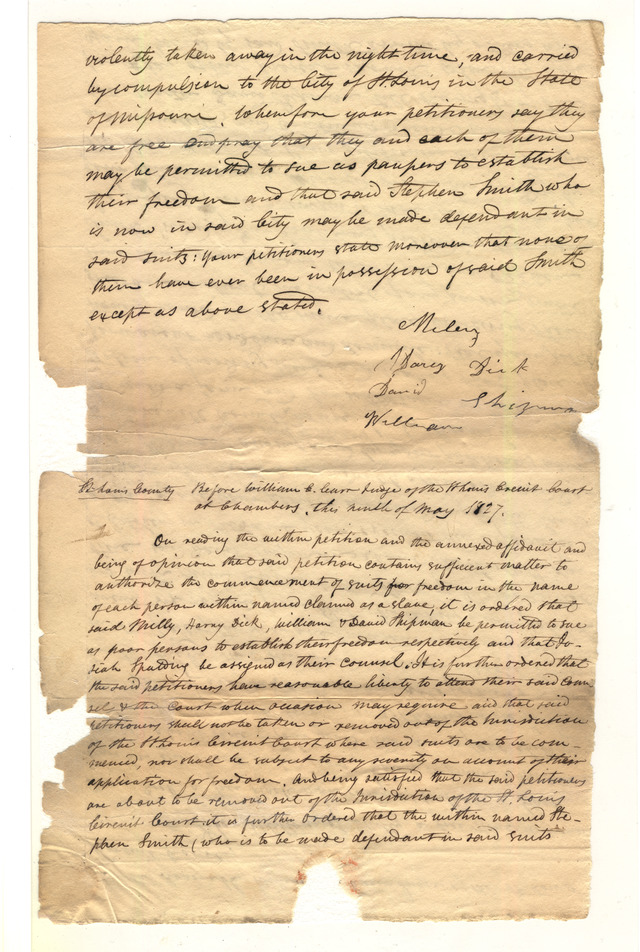 violently taken away in the night time, and carried
by compulsion to the City of St Louis in the State
of Missouri. Wherefore your petitioners say they
are free and pray that they and each of them
may be permitted to sue as paupers to establish
their freedom and that said Stephen Smith who
is now in said City may be made defendant in
said suits: Your petitioners state moreover that none of
them have ever been in possession of said Smith
except as above stated.
Milly
Harry Dick
David Shipman
William
St Louis County Before William C. Carr Judge of the St Louis Circuit Court
at Chambers, this ninth of May 1827.
On reading the within petition and the annexed affidavit and
being of opinion that said petition contains sufficient matter to
authorize the commencement of suits for freedom in the name
of each person within named claimed as a slave, it is ordered that
said Milly, Harry Dick, William & David Shipman be permitted to sue
as poor persons to establish their freedom respectively and that Jo-
siah Spalding be assigned as their counsel. It is further ordered that
the said petitioners have reasonable liberty to attend their said coun
sel & the Court when occasion may require and that said
petitioners shall not be taken or removed out of the Jurisdiction
of the St Louis Circuit Court where said suits are to be com-
menced, nor shall be subject to any severity on account of their
application for freedom. And being satisfied that the said petitioners
are about to be removed out of the Jurisdiction of the St. Louis
Circuit Court it is further ordered that the within named Ste-
phen Smith (who is to be made defendant in said suits